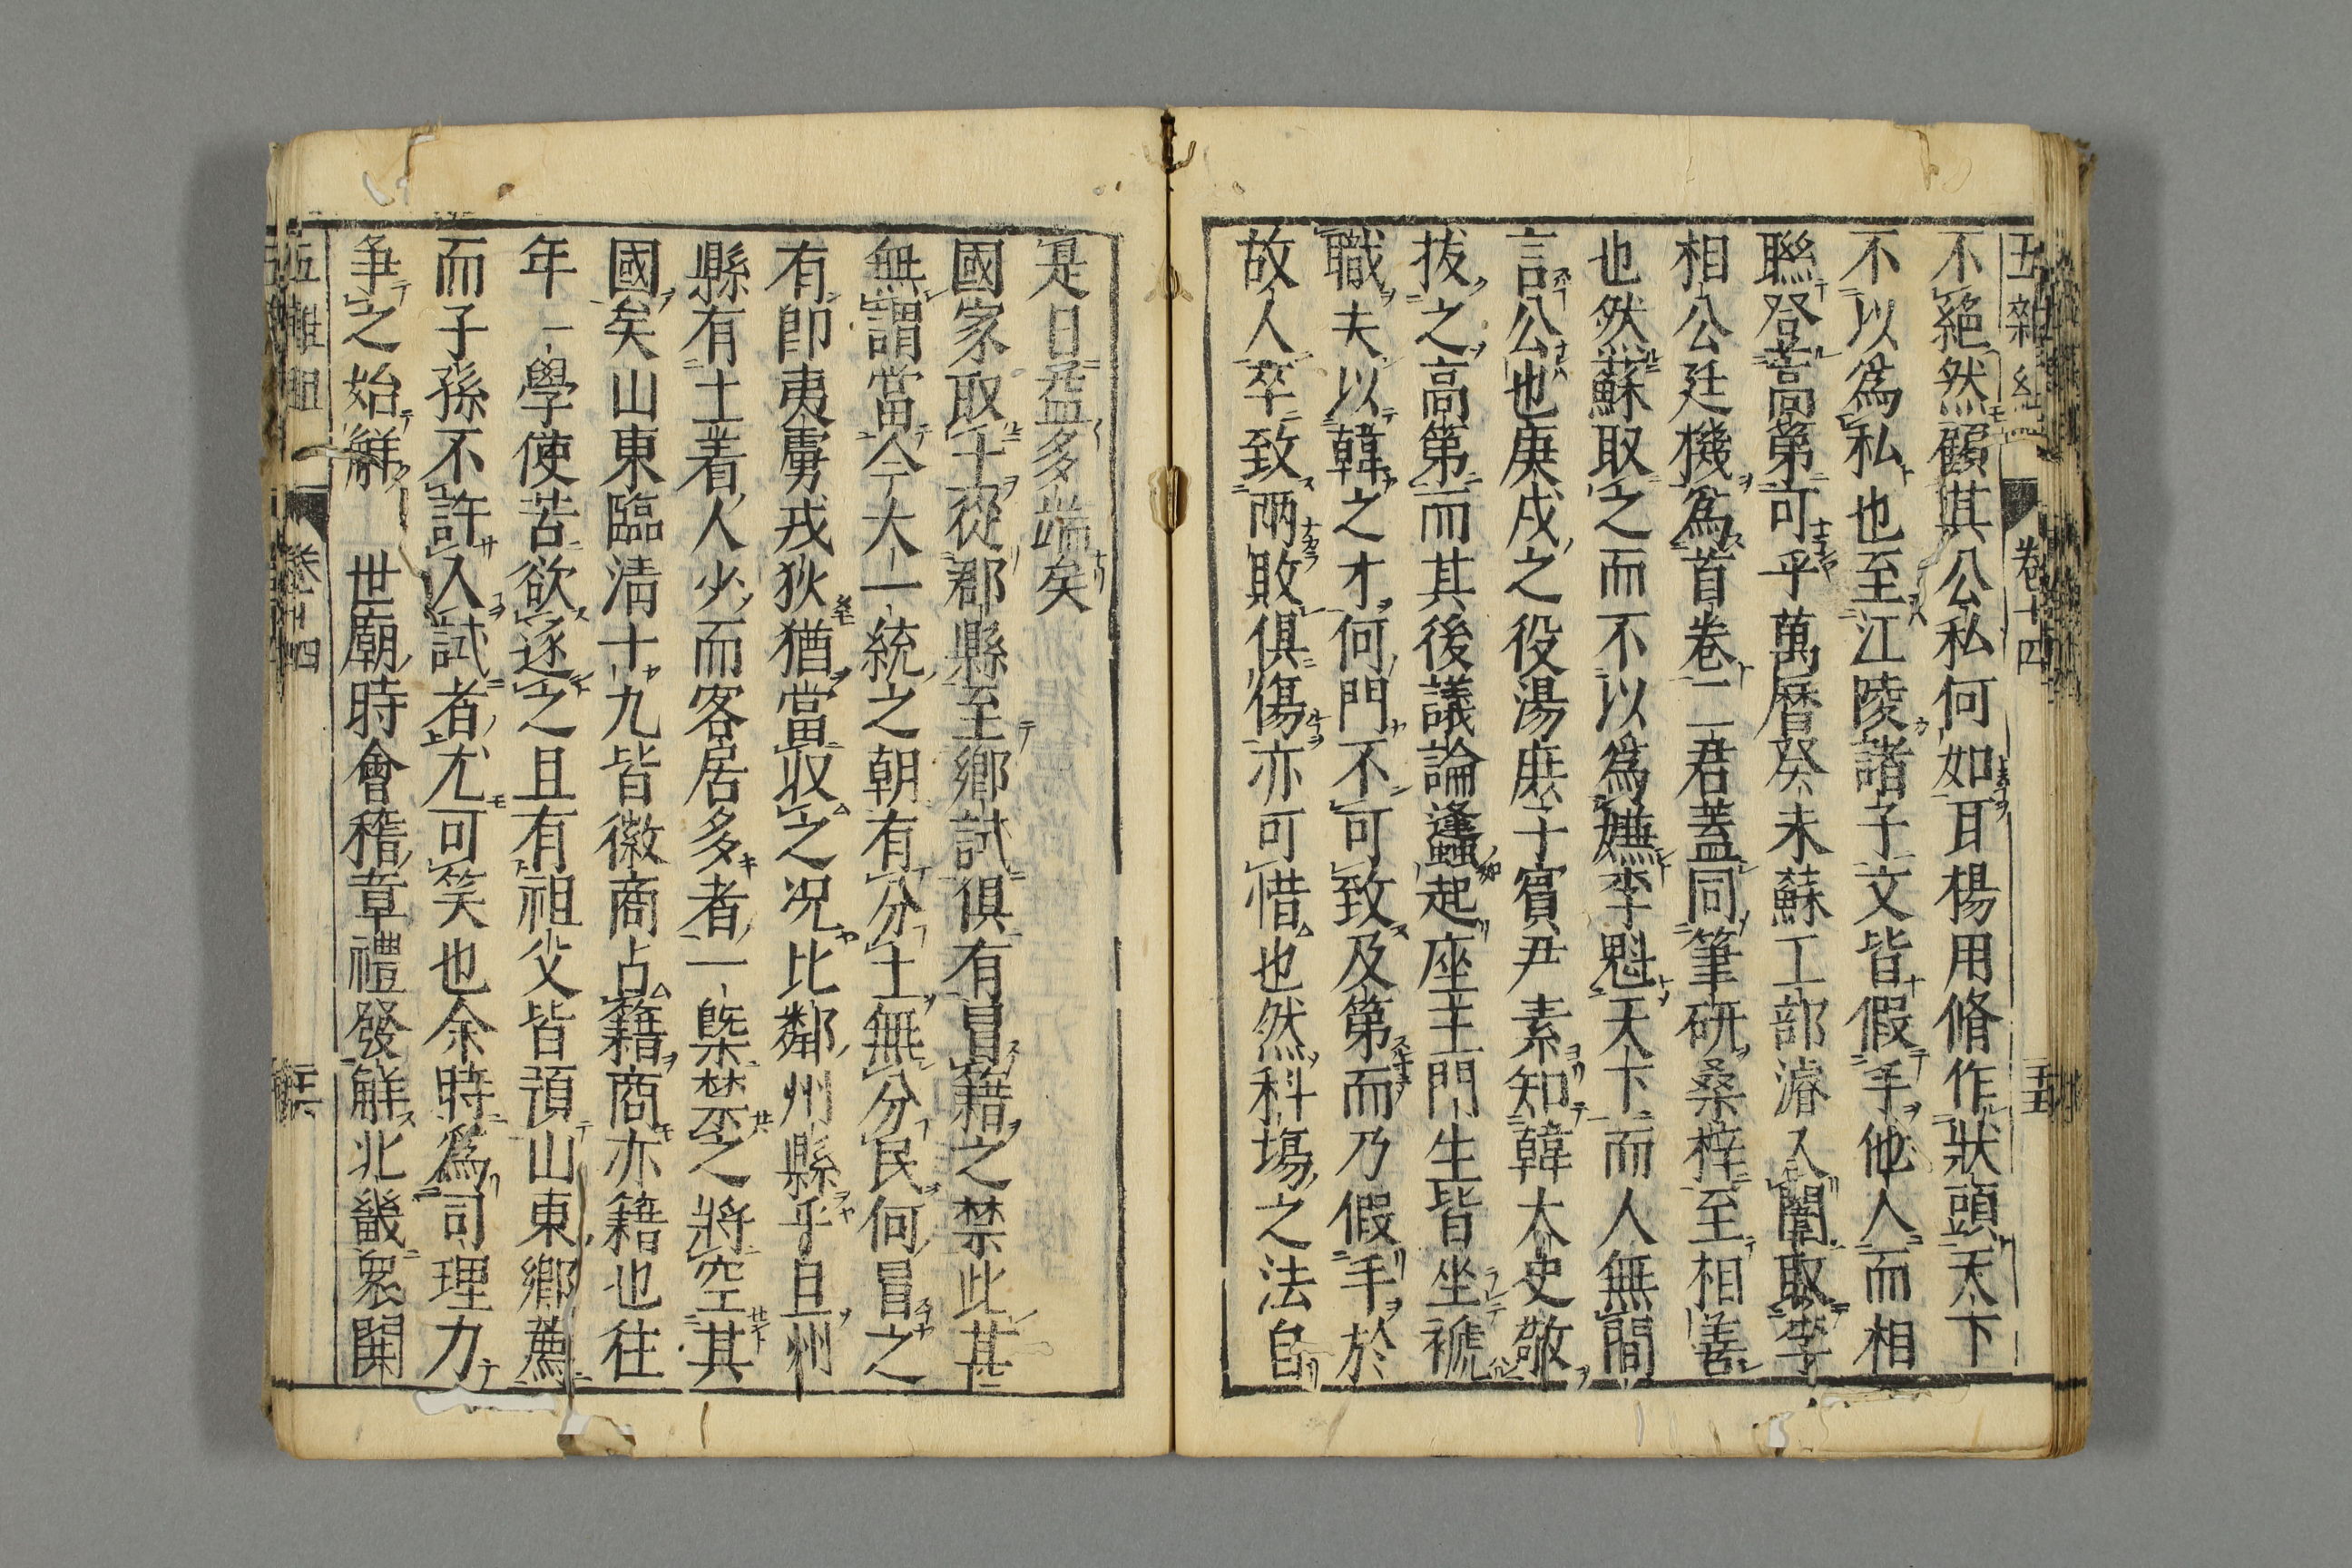 五雜組
卷十四
不絕然顧其公私何如耳楊用脩作狀頭天下
不以爲私也至江陵諸子文皆假手他人而相
聯登高第可乎萬曆癸未蘇工部濬入闈取李
相公廷機爲首卷二君蓋同筆研桑梓至相善
也然蘇取之而不以爲嫌李魁天下而人無間
言公也庚戌之役湯庶子賓尹素知韓太史敬
拔之高第而其後議論蠭起座主門生皆坐褫
職夫以韓之才何門不可致及第而乃假手於
故人卒致兩敗俱傷亦可惜也然科場之法自
是日益多端矣
國家取士從郡縣至鄉試俱有冒籍之禁此甚
無謂當今大一統之朝有分土無分民何冒之
有即夷虜戎狄猶當収之况比鄰州縣乎且州
縣有土着人少而客居多者一槩禁之將空其
國矣山東臨清十九皆徽商占籍商亦籍也往
年一學使苦欲逐之且有祖父皆預山東鄉薦
而子孫不許入試者尤可笑也余時爲司理力
爭之始解 世廟時會稽章禮發解北畿衆鬨
五雜組
卷十四